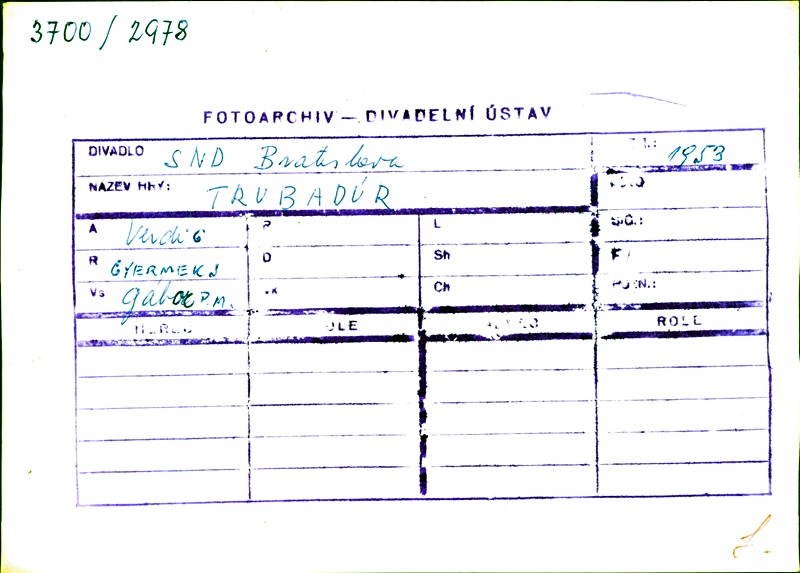 3700/2978
FOTOARCHIV — DIVADELNÍ ÚSTAV
DIVADLO SND Bratislava 1953
NÁZEV HRY: TRUBADÚR
A Verdi G P L SIG.:
R GYERMEK J D Sh F/
Vs Gábor P.M. Ch POZN.:
HEREC ROLE HEREC ROLE